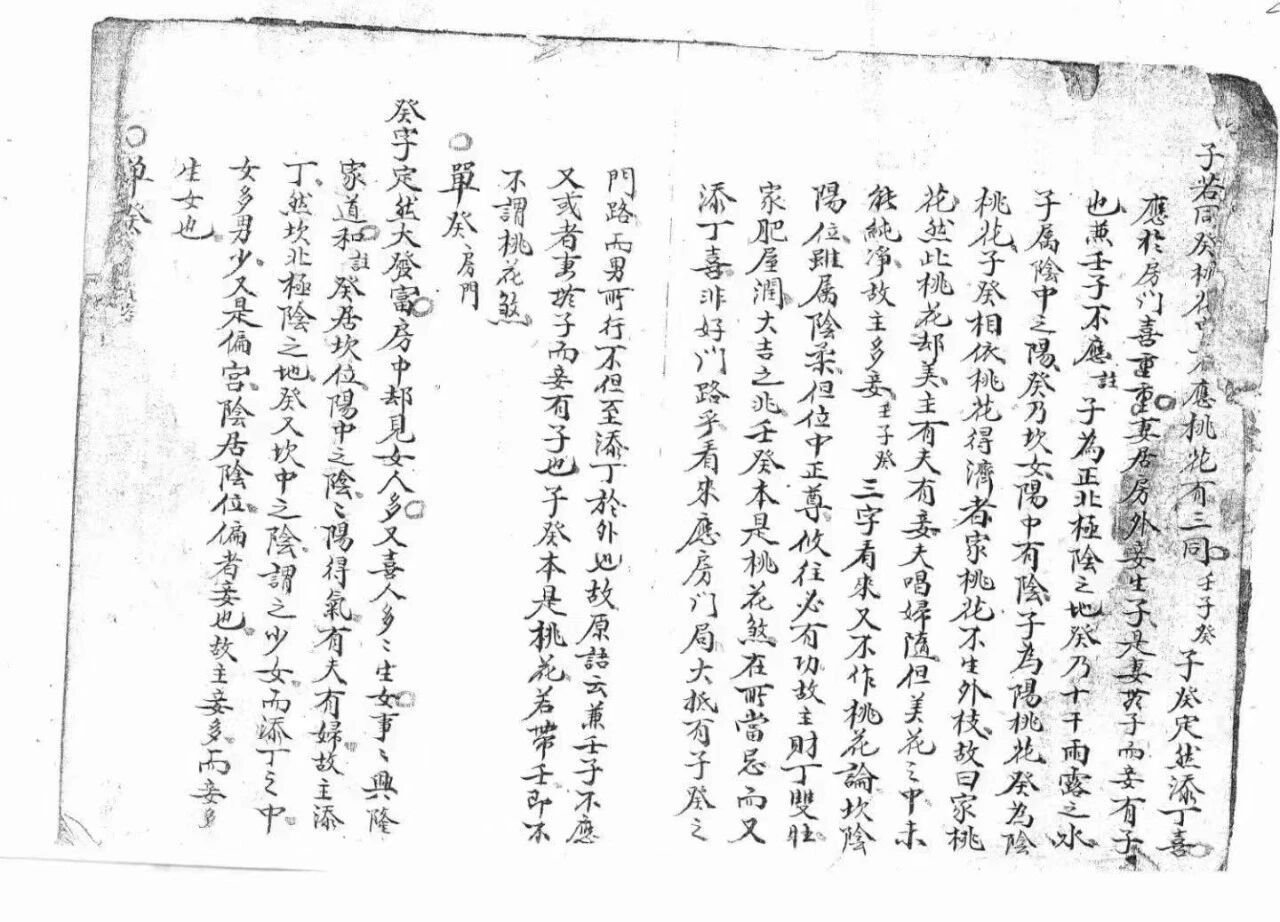 子若同癸桃花 應桃花有三同壬子癸子癸定然添丁喜
應於房门喜重重妻居房外妾生子是妻於子而妾有子
也兼壬子不應註子為正北極陰之地癸乃十干雨露之水
子属陰中之陽癸乃坎女陽中有陰子為陽桃花癸為陰
桃花子癸相依桃花得濟者家桃花不生外枝故曰家桃
花然此桃花却美主有夫有妾夫唱婦隨但美花之中未
能純净故主多妾壬子癸三字看來又不作桃花論坎陰
陽位雖属陰柔但位中正尊攸往必有功故主財丁雙旺
家肥屋潤大吉之兆壬癸本是桃花煞在所當忌而又
添丁喜非好门路乎看來應房门局大抵有子癸之
門路而男所行不但至添丁於外也故原語云兼壬子不應
又或者妻於子而妾有子也子癸本是桃花若帶壬即不
不謂桃花煞
單癸房門
癸字定然大發富房中却見女人多又喜人多〻生女事〻興隆
家道和註癸居坎位陽中之陰〻陽得氣有夫有婦故主添
丁然坎北極陰之地癸又坎中之陰謂之少女而添丁之中
女多男少又是偏宮陰居陰位偏者妾也故主妾多而妾多
生女也
單癸